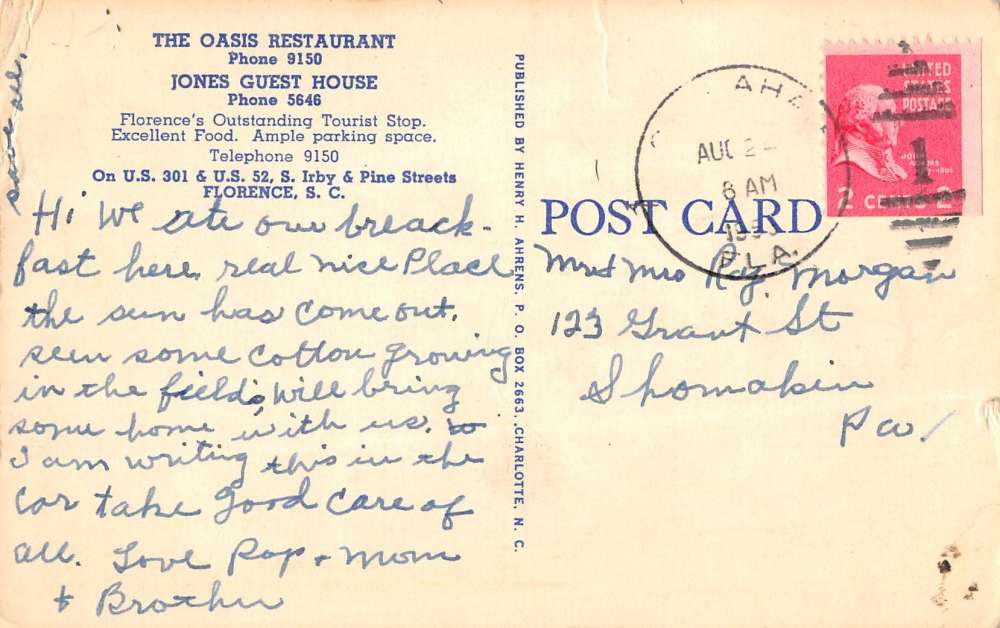 THE OASIS RESTAURANT
Phone 9150
JONES GUEST HOUSE
Phone 5646
Florence's Outstanding Tourist Stop.
Excellent Food. Ample parking space.
Telephone 9150
On U.S. 301 & U.S. 52, S. Irby & Pine Streets
FLORENCE, S. C.
Hi We ate our breack-
fast here real nice Place
the sun has come out.
seen some cotton growing
in the fields, will bring
some home with us.
I am writing this in the
Car take Good Care of
all. Love Pop + Mom
+ Brother
PUBLISHED BY HENRY H. AHRENS, P. O. BOX 2663, CHARLOTTE, N. C.
POST CARD
AUG 2
8 AM
FLA.
UNITED
STATES
POSTAGE
1
JOHN
ADAMS
2 CENTS 2
Mr + Mrs Ray. Morgan
123 Grant St
Shomakin
Pa.